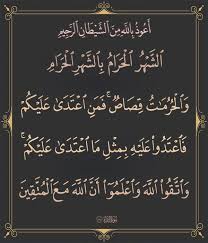 أَعُوذُ بِاللَّهِ مِنَ الشَّيْطَانِ الرَّجِيمِ
الشَّهْرُ الْحَرَامُ بِالشَّهْرِ الْحَرَامِ
وَالْحُرُمَاتُ قِصَاصٌ ۚ فَمَنِ اعْتَدَىٰ عَلَيْكُمْ
فَاعْتَدُوا عَلَيْهِ بِمِثْلِ مَا اعْتَدَىٰ عَلَيْكُمْ ۚ
وَاتَّقُوا اللَّهَ وَاعْلَمُوا أَنَّ اللَّهَ مَعَ الْمُتَّقِينَ